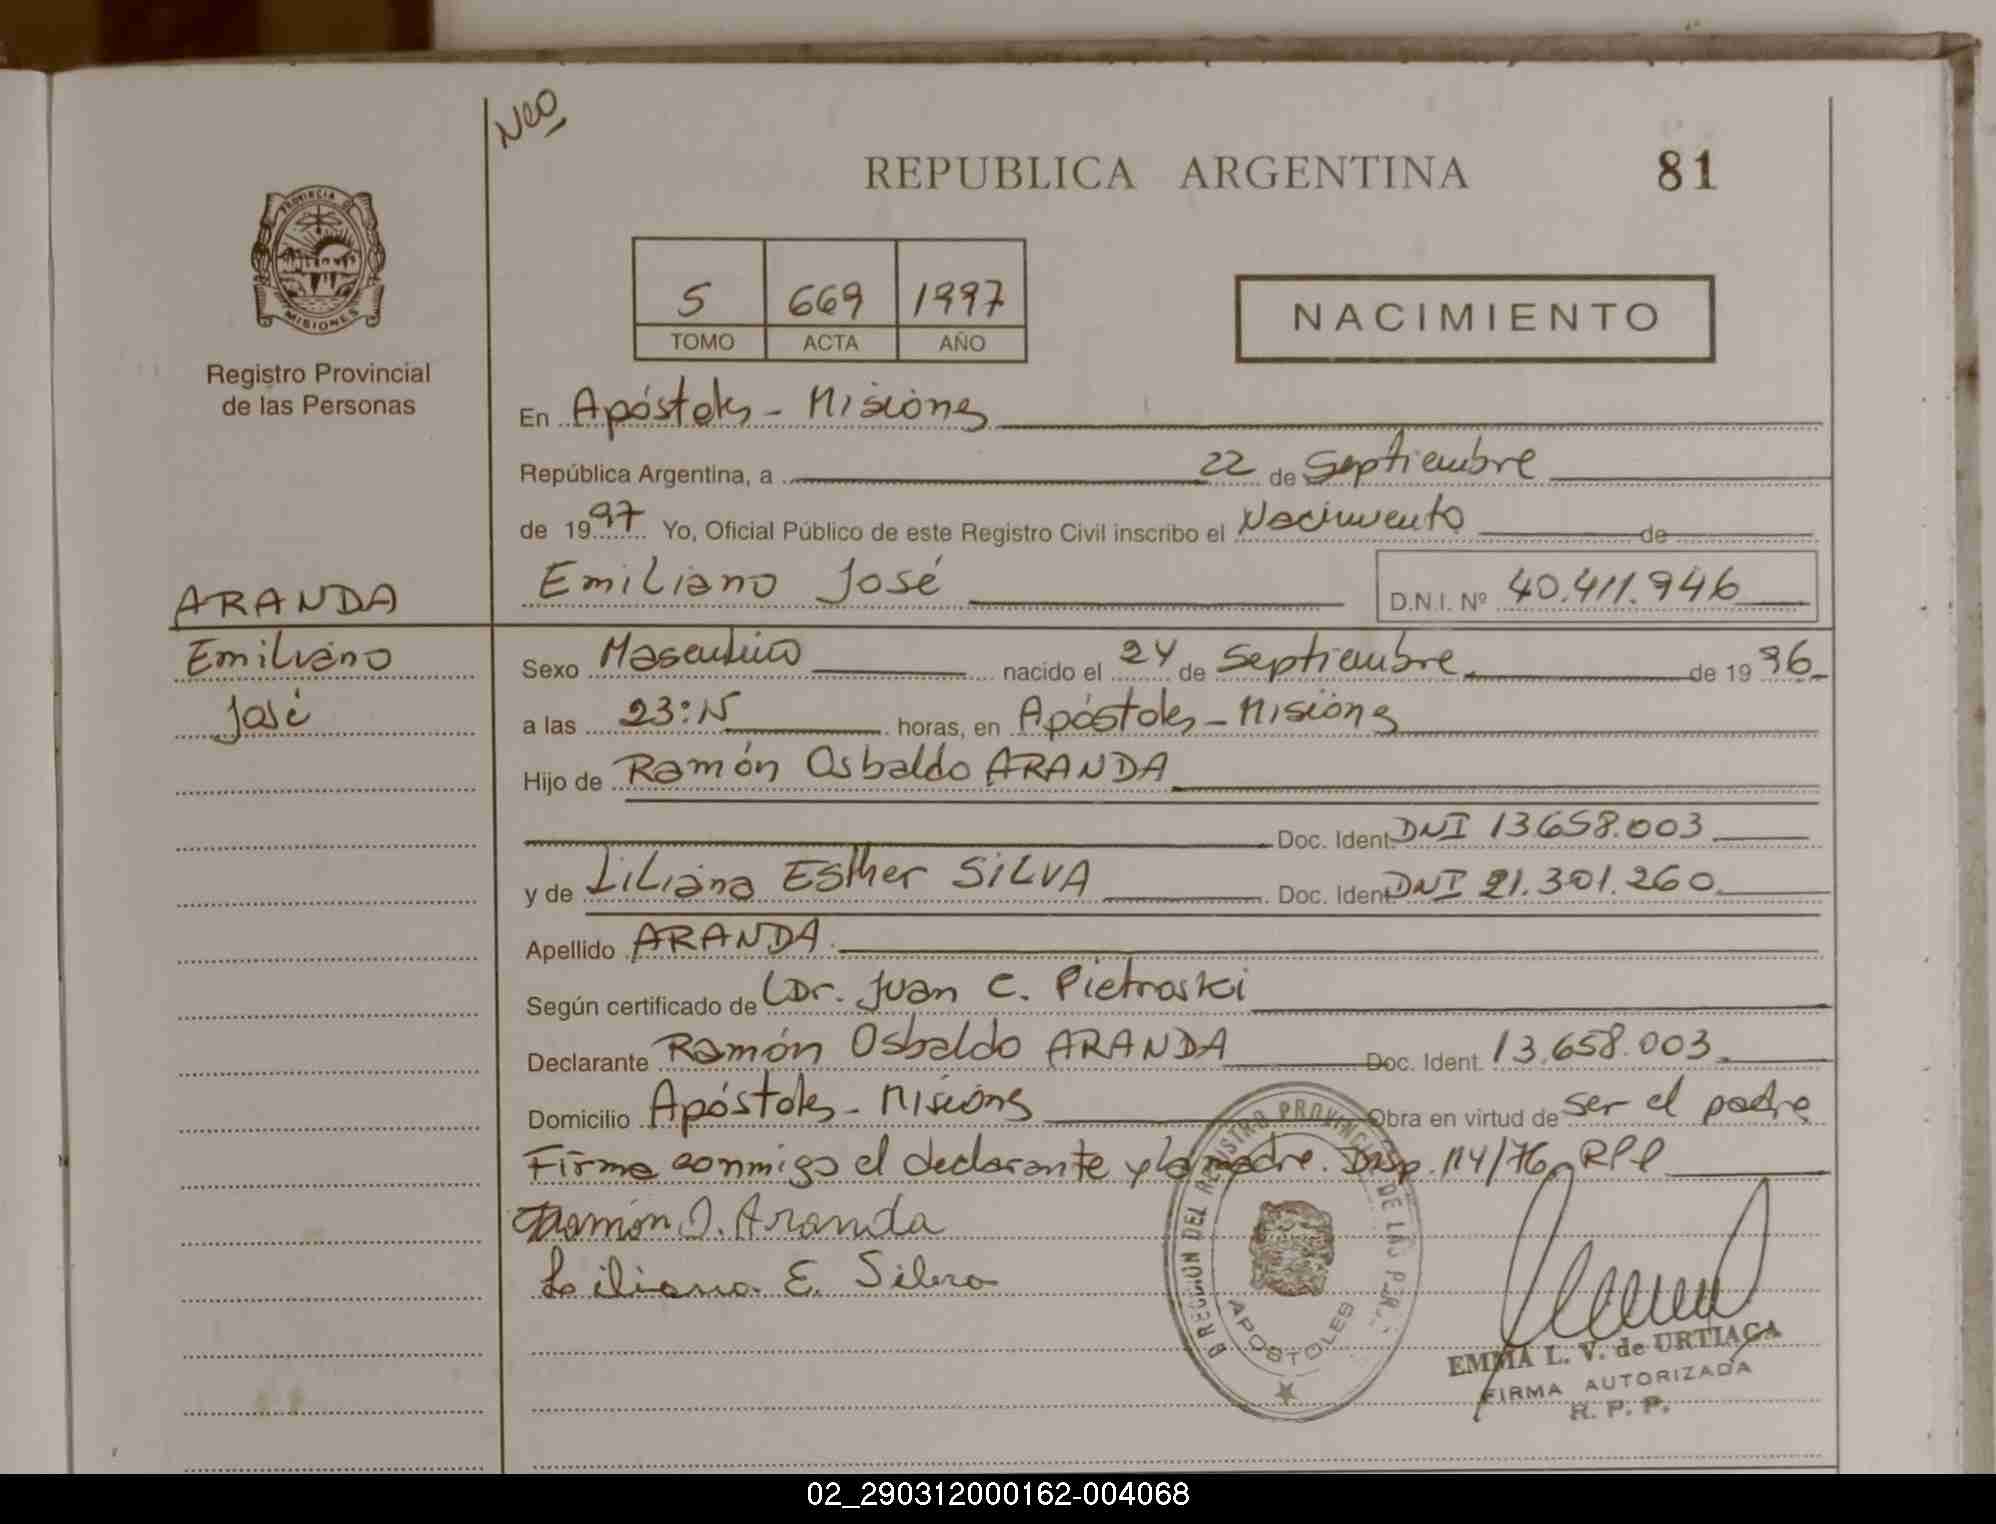 Neo
REPUBLICA ARGENTINA
81
PROVINCIA DE
MISIONES
Registro Provincial
de las Personas
5 669 1997
TOMO ACTA AÑO
NACIMIENTO
En Apóstoles - Misiones
República Argentina, a 22 de Septiembre
de 1997 Yo, Oficial Público de este Registro Civil inscribo el Nacimiento de
Emiliano José D.N.I. Nº 40.411.946
ARANDA
Emiliano
José
Sexo Masculino nacido el 24 de Septiembre de 1996
a las 23:15 horas, en Apóstoles - Misiones
Hijo de Ramón Osbaldo ARANDA
Doc. Ident. DNI 13.658.003
y de Liliana Esther SILVA Doc. Ident. DNI 21.301.260
Apellido ARANDA
Según certificado de Dr. Juan C. Pietroski
Declarante Ramón Osbaldo ARANDA Doc. Ident. 13.658.003
Domicilio Apóstoles - Misiones Obra en virtud de ser el padre
Firma conmigo el declarante y la madre. Disp. 114/76 RPP
Ramón O. Aranda
Liliana E. Silva
DIRECCION DEL REGISTRO PROVINCIAL DE LAS PER.
APOSTOLES
EMMA L. V. de URTIAGA
FIRMA AUTORIZADA
R. P. P.
02_290312000162-004068